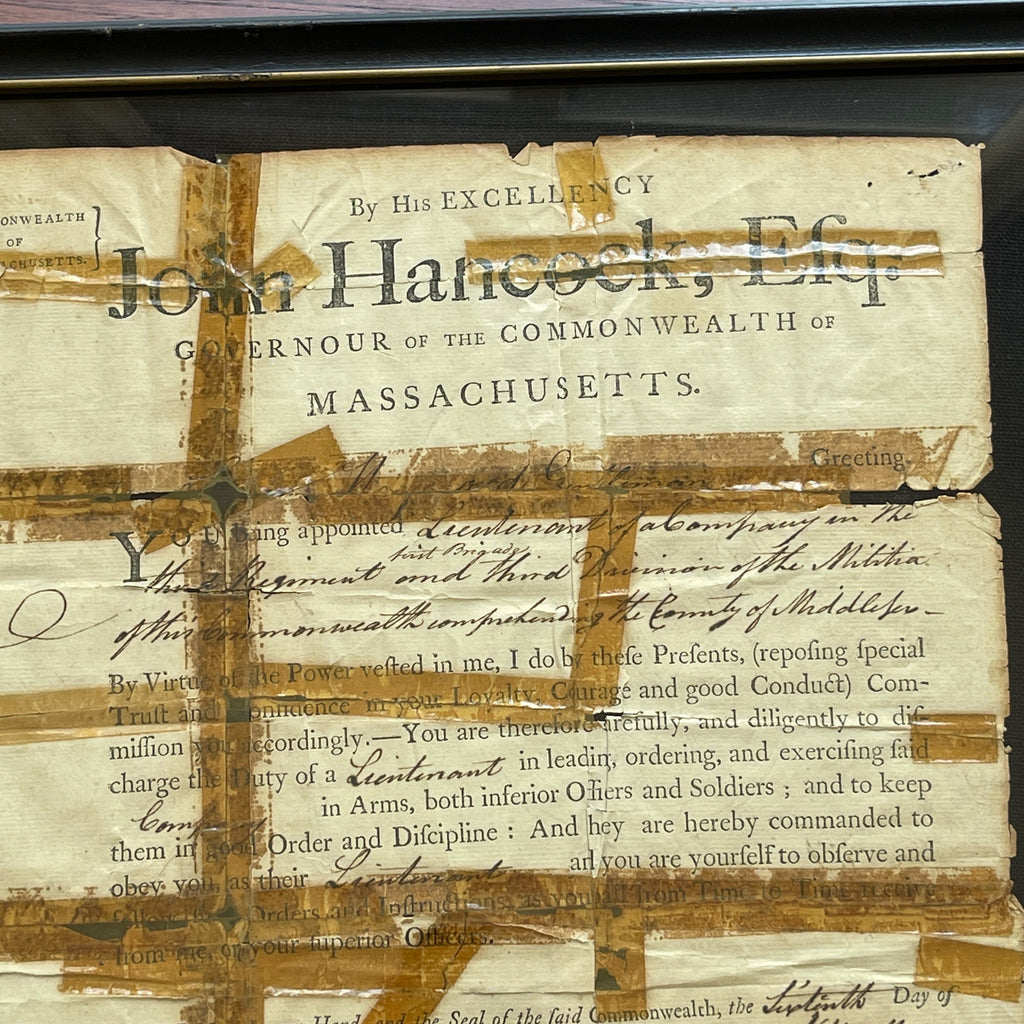 By His EXCELLENCY
ONWEALTH
OF
ACHUSETTS.
John Hancock, Eſq;
GOVERNOUR OF THE COMMONWEALTH OF
MASSACHUSETTS.
and Gentleman Greeting.
YOU being appointed Lieutenant of a Company in the
first Brigade
Regiment and third Division of the Militia
of this Commonwealth comprehending the County of Middlesex—
By Virtue of the Power veſted in me, I do by theſe Preſents, (repoſing ſpecial
Truſt and Confidence in your Loyalty, Courage and good Conduct) Com-
miſſion you accordingly.—You are therefore arefully, and diligently to diſ-
charge the Duty of a Lieutenant in leadin, ordering, and exerciſing ſaid
Company in Arms, both inferior Offiers and Soldiers ; and to keep
them in good Order and Diſcipline : And hey are hereby commanded to
obey you as their Lieutenant ad you are yourſelf to obſerve and
follow Orders and Inſtructions, as you all from Time to Time receive
from me, or your ſuperior Officers.
Hand, and the Seal of the ſaid Commonwealth, the Sixteenth Day of